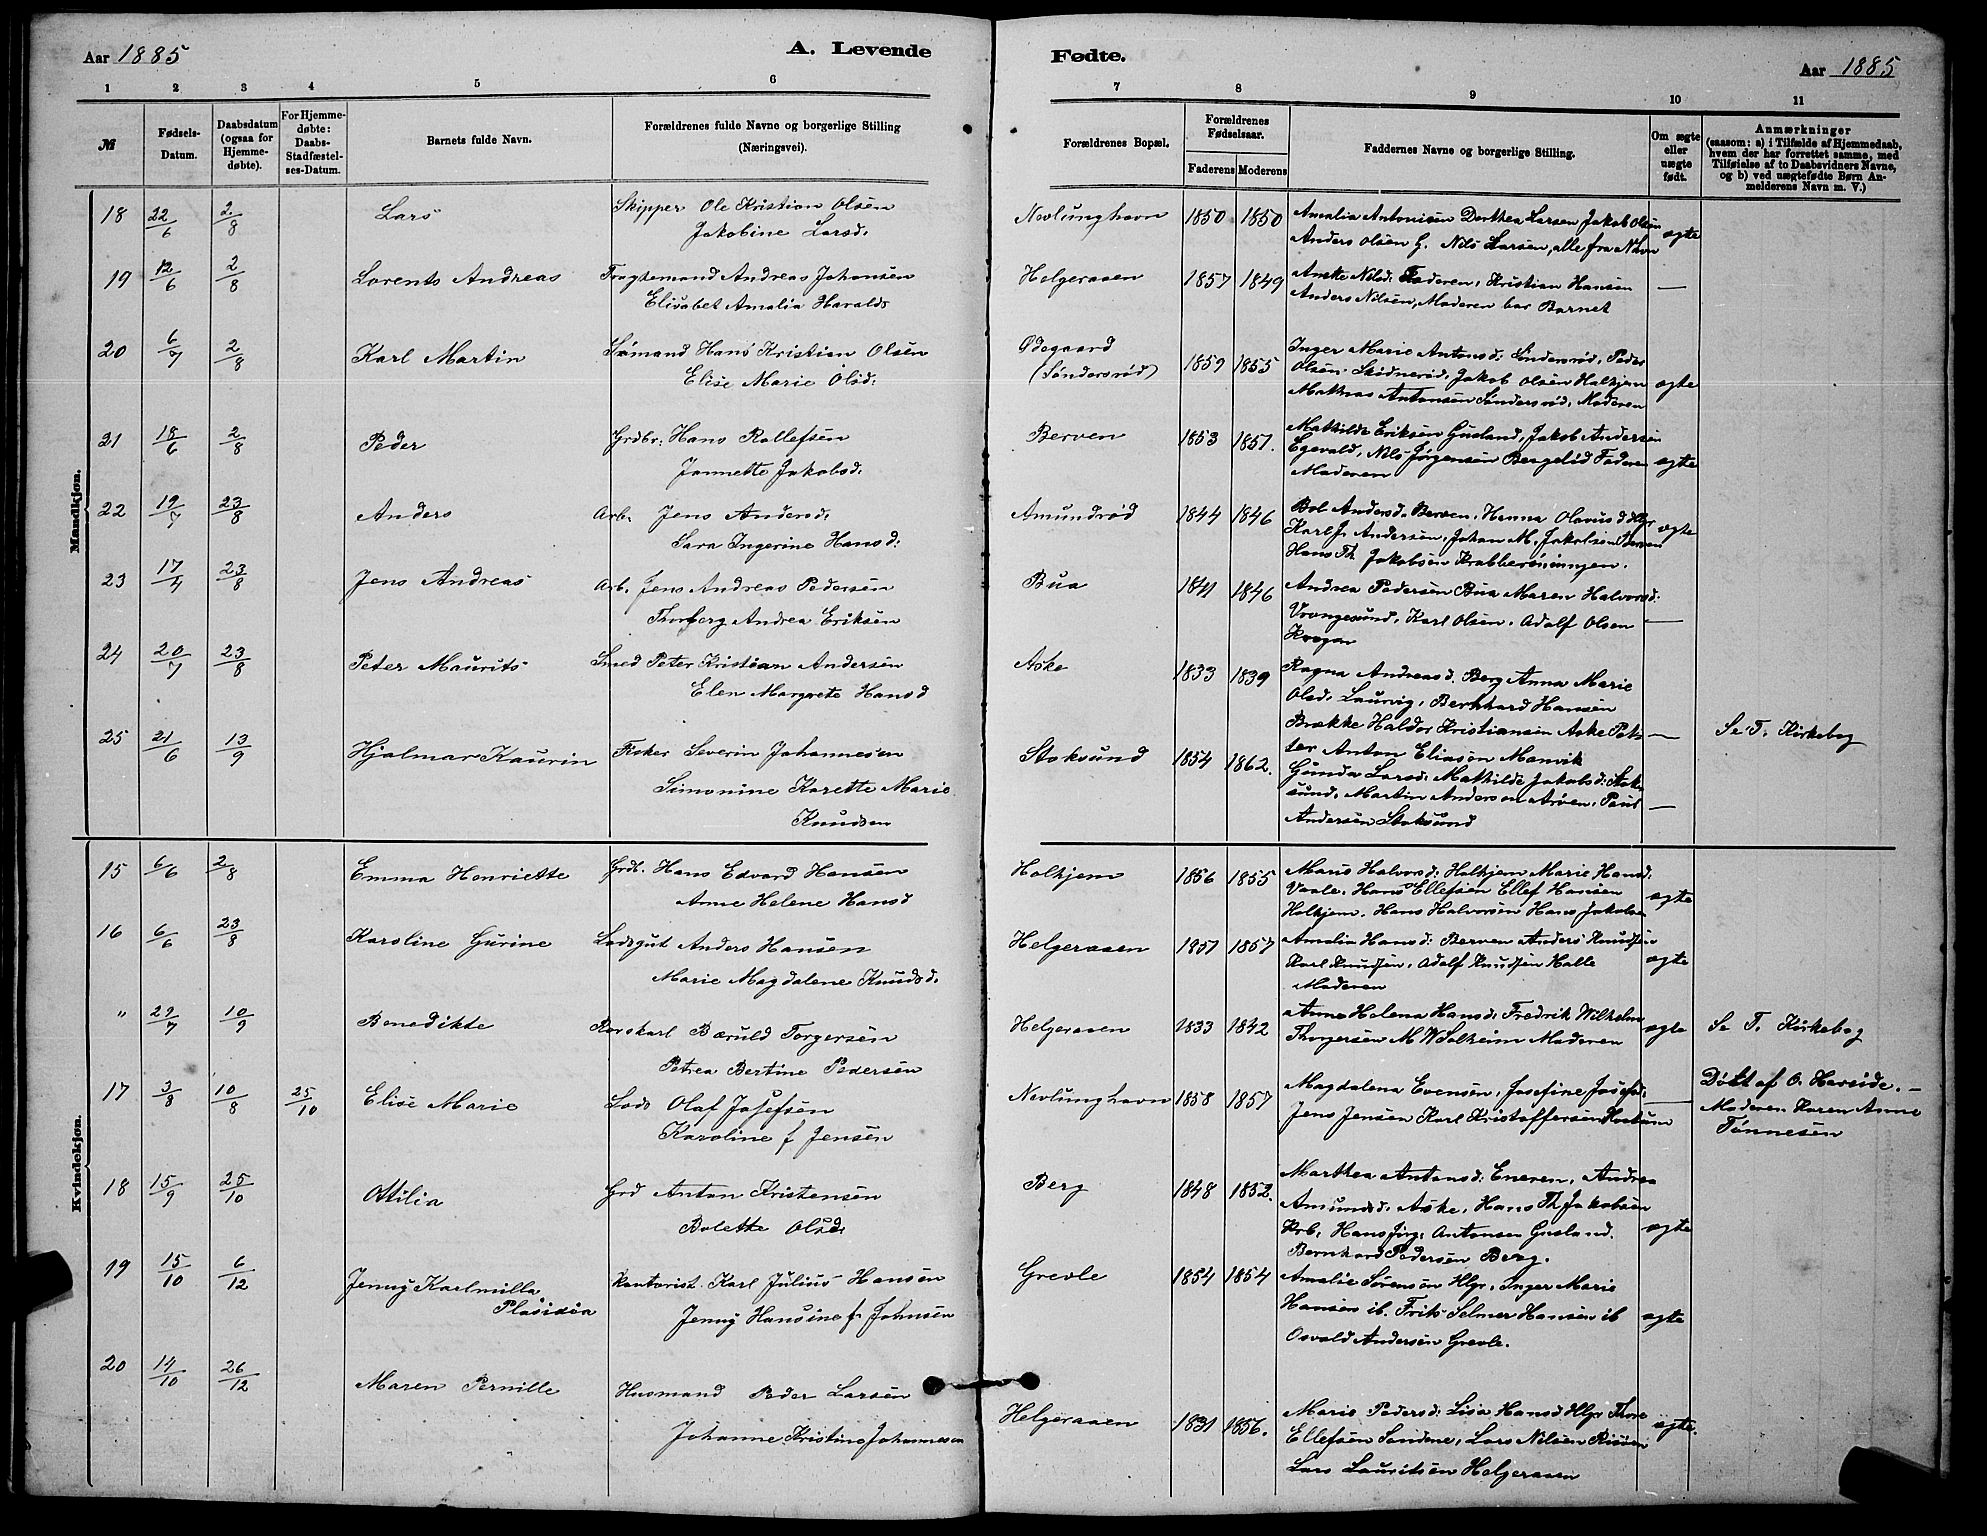 Aar 1885
A. Levende
Fødte.
Aar 1885
1 2 3 4 5 6
7 8 9 10 11
№
Fødsels-Datum.
Daabsdatum (ogsaa for Hjemmedøbte).
For Hjemmedøbte: Daabs-Stadfæstelses-Datum.
Barnets fulde Navn.
Forældrenes fulde Navne og borgerlige Stilling (Næringsvei).
Forældrenes Bopæl.
Forældrenes Fødselsaar.
Faderens Moderens
Faddernes Navne og borgerlige Stilling.
Om ægte eller uægte født.
Anmærkninger
(saasom: a) i Tilfælde af Hjemmedaab, hvem der har forrettet samme, med Tilføielse af to Daabsvidners Navne, og b) ved uægtefødte Børn Anmelderens Navn m. V.)
Mandkjøn.
18 22/6 2/8 Lars Skipper Ole Kristian Olsen
Jakobine Larsd:
Nevlunghavn 1850 1850 Amalia Antonisen Dorthea Larsen Jakob Olsen
Anders Olsen G. Nils Larsen, alle fra Nhvn ægte
19 12/6 2/8 Lorents Andreas Fragtemand Andreas Johansen
Elisabet Amalia Haralds
Helgeraaen 1857 1849 Nilsd: Faderen, Kristian Hansen —
Anders Nilsen, Moderen bar Barnet
20 6/7 2/8 Karl Martin Sømand Hans Kristian Olsen
Elise Marie Olsd:
Ødegaard
(Søndersrød) 1859 1855 Inger Marie Antonsd: Søndersrød, Peder
Olsen Skødnerød, Jakob Olsen Halkjem ægte
Mathias Antonsen Søndersrød, Moderen
21 18/6 2/8 Peder Grdbr: Hans Rollefsen
Jannette Jakobsd:
Berven 1853 1851. Mathilde Eriksen Gusland, Jakob Andersen
Egevald, Nils Jørgensen Faderen ægte
Moderen
22 19/7 23/8 Anders Arb. Jens Andersd:
Sara Ingerine Hansd:
Amundrød 1844 1846 Bol Andersd. Berven, Hanna Olavusd Hlgr ægte
Karl J. Andersen, Johan M. Jakobsen Berven
Hans Th Jakobsen
23 17/4 23/8 Jens Andreas Arb. Jens Andreas Pedersen
Thorborg Andrea Eriksen
Bua 1841 1846 Andrea Pedersen Bua Maren Halvorsd:
Vrangesund, Karl Olsen, Adolf Olsen —
24 20/7 23/8 Peter Maurits Smed Peter Kristian Andersen
Elen Margrete Hansd
Aske 1833 1839 Ragna Andreasd. Berg Anna Marie
Olsd, Laurvig, Bernhard Hansen
Brække Haldor Kristiansen Aske Pet- —
ter Anton Eliasen Manvik
25 21/6 13/9 Hjalmar Kaurin Fisker Severin Johannesen
Simonine Karette Marie
Knudsen
Stoksund 1854 1862. Gunda Larsd: Mathilde Jakobsd: Stok-
sund, Martin Andersen Arøen, Paul —
Andersen Stoksund
Se T. Kirkebog
Kvindekjøn.
15 6/6 2/8 Emma Henriette Grdb. Hans Edvard Hansen
Anne Helene Hansd
Halkjem 1856 1855 Maris Halvorsd: Halkjem Marie Hansd:
Vaale, Hans Ellefsen Ellef Hansen ægte
Halkjem. Hans Halvorsen Hans Jakobsen
16 6/6 23/8 Karoline Gurine Lodsgut Anders Hansen
Marie Magdalene Knudsd.
Helgeraaen 1857 1857 Amalia Hansd: Berven Anders Knudsen
Karl Knudsen, Adolf Knudsen Halle ægte
Moderen
" 29/7 10/9 Benedikte Rorskarl Bæruld Torgersen
Petrea Bertine Pedersen
Helgeraaen 1833 1842 Anna Helena Hansd: Fredrik Wilhelm
Thorgersen M W Solheim Moderen ægte Se T. Kirkebog
17 3/8 10/8 25/10 Elise Marie Lods Olaf Josefsen
Karoline f Jensen
Nevlunghavn 1858 1857 Magdalena Evensen, Josefine Josefsd: —
Jens Jensen Karl Kristoffersen
Døbt af O. Havside. —
Moderen Karen Anne
Tønnesen
18 15/9 25/10 Ottilia Grd Anton Kristensen
Bolette Olsd:
Berg 1848 1852. Marthea Antonsd: Eneren, Andrea
Amundsd: Aske, Hans Th Jakobsen
Krb, Hans Jørg: Antonsen Gusland. ægte
Bernhard Pedersen Berg.
19 15/10 6/12 Jenny Karlmilla
Plasidia Kantorist. Karl Julius Hansen
Jenny Hansine f. Johnsen
Grevle 1854 1854 Amalie Sørensen Hlgr, Inger Marie
Hansen ib. Frits Selmer Hansen ib ægte
Osvald Andersen Grevle.
20 14/10 26/12 Maren Pernille Husmand Peder Larsen
Johanne Kristine Johannesen
Helgeraaen 1831 1856. Maris Pedersd: Lisa Hansd Hlgr Thore ægte.
Ellefsen Sandene, Lars Nilsen
Lars Lauritsen Helgeraaen